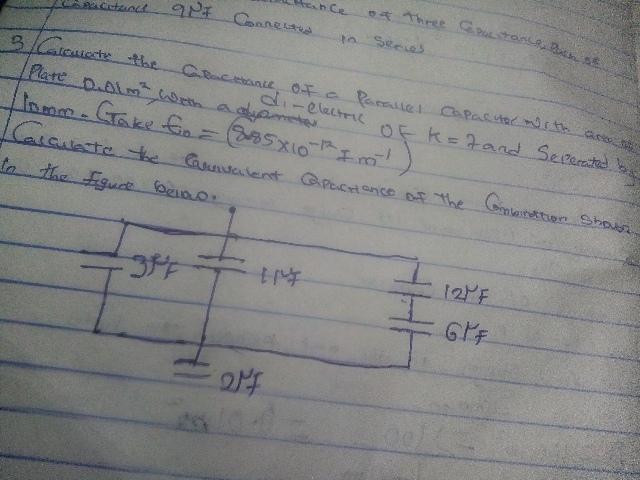 Capacitance of three Capacitance, each of
Capacitance 9μF Connected in Series
3 Calculate the Capacitance of a Parallel Capacitor with area of
Plate 0.01m², with a di-electric OF K=7 and Seperated by
(Take ε₀ = (8.85×10⁻¹² Fm⁻¹)
Calculate the Equivalent Capacitance of the Combination Shown
in the figure below.
3μF
1μF
12μF
6μF
2μF